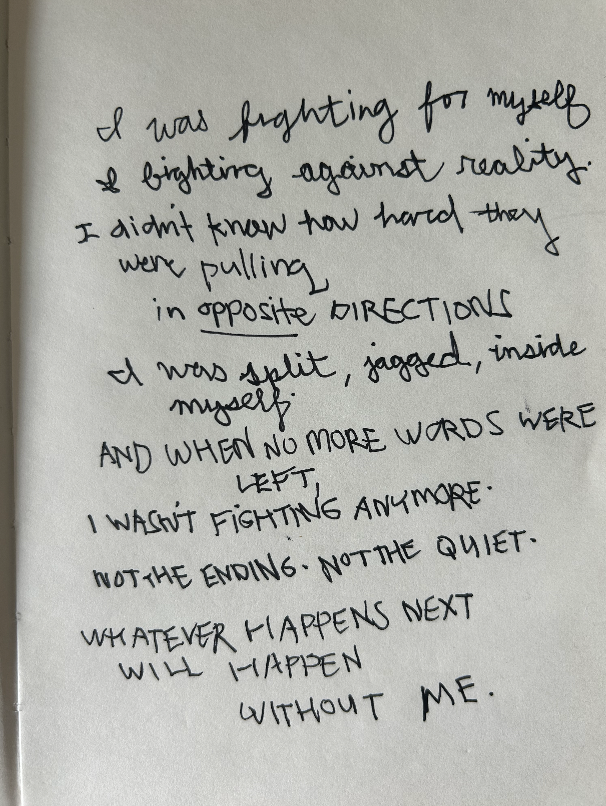 I was fighting for myself
& fighting against reality.
I didn't know how hard they
were pulling
in opposite DIRECTIONS
I was split, jagged, inside
myself.
AND WHEN NO MORE WORDS WERE
LEFT,
I WASN'T FIGHTING ANYMORE.
NOT THE ENDING. NOT THE QUIET.
WHATEVER HAPPENS NEXT
WILL HAPPEN
WITHOUT ME.